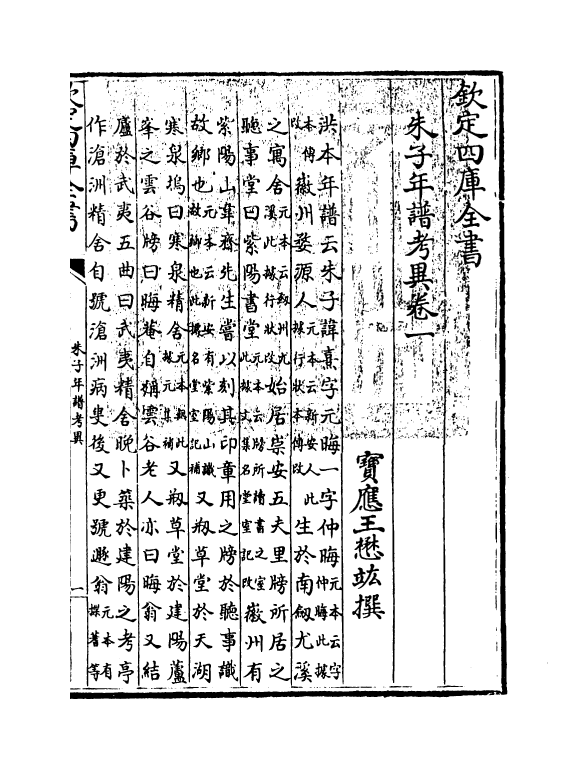 欽定四庫全書
朱子年譜考異卷一
寶應王懋竑撰
洪本年譜云朱子諱熹字元晦一字仲晦元本云字仲晦此據
本傳改徽州婺源人元本云新安人此據行狀本傳改生於南劔尤溪
之寓舍元本云劔州尤溪此據行狀改始居崇安五夫里牓所居之
聽事堂曰紫陽書堂元本云牓所讀書之室此據文集名堂室記改徽州有
紫陽山韋齋先生嘗以刻其印章用之牓於聽事識
故鄉也元本云新安有紫陽山識故鄉也此據名堂室記補又剏草堂於天湖
寒泉塢曰寒泉精舍元本無此據元集補又剏草堂於建陽蘆
峯之雲谷牓曰晦菴自稱雲谷老人亦曰晦翁又結
廬於武夷五曲曰武夷精舍晚卜築於建陽之考亭
作滄洲精舍自號滄洲病叟後又更號遯翁元本有揲蓍等
欽定四庫全書
朱子年譜考異
一